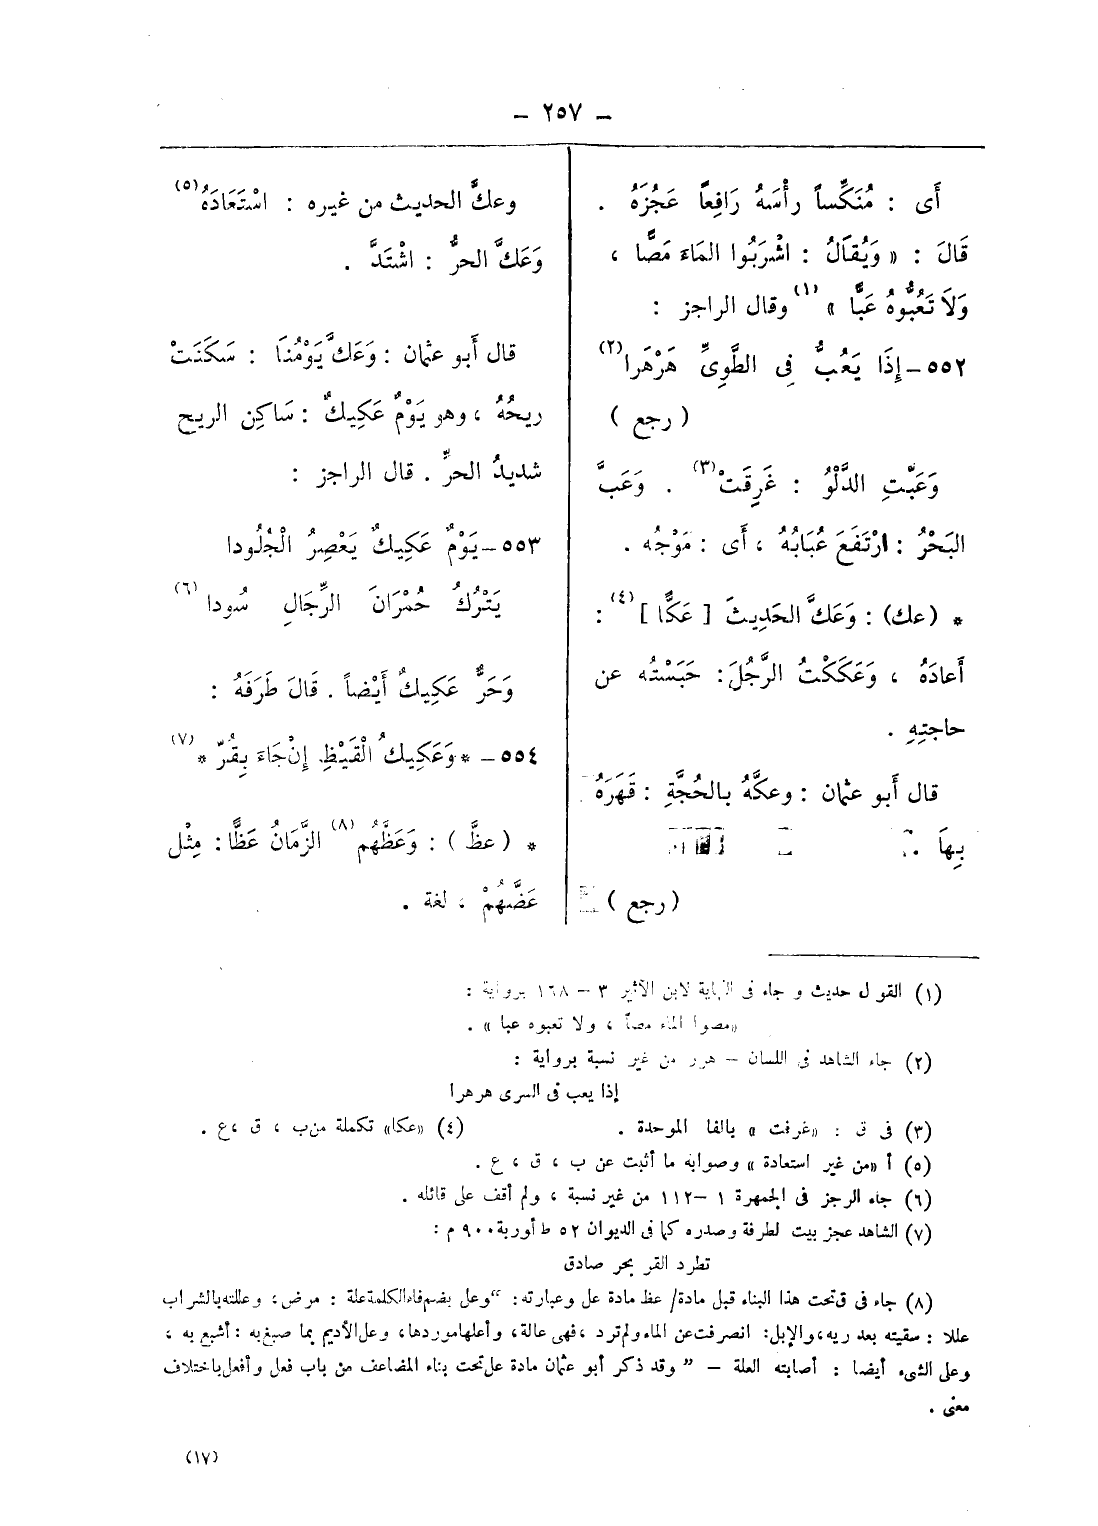 – ٢٥٧ –
أَى : مُنَكِّساً رأْسَهُ رَافِعاً عَجُزَهُ .
قَالَ : « وَيُقاَلُ : اشْرَبُوا المَاءَ مَصًّا ،
وَلاَ تَعُبُّوهُ عَبًّا » (١) وقال الراجز :
٥٥٢ – إِذَا يَعُبُّ فِى الطَّوِىِّ هَرْهَرا (٢)
( رجع )
وَعَبَّتِ الدَّلْوُ : غَرِقَتْ (٣) . وَعَبَّ
البَحْرُ : ارْتَفَعَ عُبَابُهُ ، أَى : مَوْجُه .
* (عك) : وَعَكَّ الحَدِيثَ [ عَكًّا ] (٤) :
أَعادَهُ ، وَعَكَكْتُ الرَّجُلَ : حَبَسْتُه عن
حاجتِهِ .
قال أَبو عثمان : وعكَّهُ بالحُجَّةِ : قَهَرَهُ
بِهاَ .
( رجع )
وعكَّ الحديث من غيره : اسْتَعَادَهُ (٥)
وَعَكَّ الحرُّ : اشْتَدَّ .
قال أَبو عثمان : وَعَكَّ يَوْمُنَا : سَكَنَتْ
ريحُهُ ، وهو يَوْمٌ عَكِيكٌ : سَاكِن الريح
شديدُ الحرِّ . قال الراجز :
٥٥٣ – يَوْمٌ عَكِيكٌ يَعْصِرُ الْجُلُودا
يَتْرُكُ حُمْرَانَ الرِّجَالِ سُودا (٦)
وَحَرٌّ عَكِيكٌ أَيْضاً . قَالَ طَرَفَهُ :
٥٥٤ – * وَعَكِيكُ الْقَيْظِ إِنْ جَاءَ بِقُرّ * (٧)
* ( عظَّ ) : وَعَظَّهُم (٨) الزَّمَانُ عَظًّا : مِثْل
عَضَّهُمْ ، لغة .
(١) القول حديث و جاء فى النهاية لابن الأثير ٣ – ١٦٨ برواية :
«مصوا الماء مصاً ، ولا تعبوه عبا » .
(٢) جاء الشاهد فى اللسان – هرر من غير نسبة برواية :
إذا يعب فى السرى هرهرا
(٣) فى ق : «غرفت » بالفا الموحدة . (٤) «عكا» تكملة من ب ، ق ،ع .
(٥) أ «من غير استعادة » وصوابه ما أثبت عن ب ، ق ، ع .
(٦) جاء الرجز فى الجمهرة ١ –١١٢ من غير نسبة ، ولم أقف على قائله .
(٧) الشاهد عجز بيت لطرفة وصدره كما فى الديوان ٥٢ ط أوربة ٩٠٠ م :
تطرد القر بحر صادق
(٨) جاء فى ق تحت هذا البناء قبل مادة/ عظ مادة عل وعبارته: “وعل بضم فاء الكلمة علة : مرض، وعللته بالشراب
عللا : سقيته بعد ريه، والإبل: انصرفت عن الماء ولم ترد ، فهى عالة، وأعلها موردها، وعل الأديم بما صبغ به : أشبع به ،
وعلى الشىء أيضا : أصابته العلة – ” وقد ذكر أبو عثمان مادة عل تحت بناء المضاعف من باب فعل وأفعل باختلاف
معنى .
(١٧)